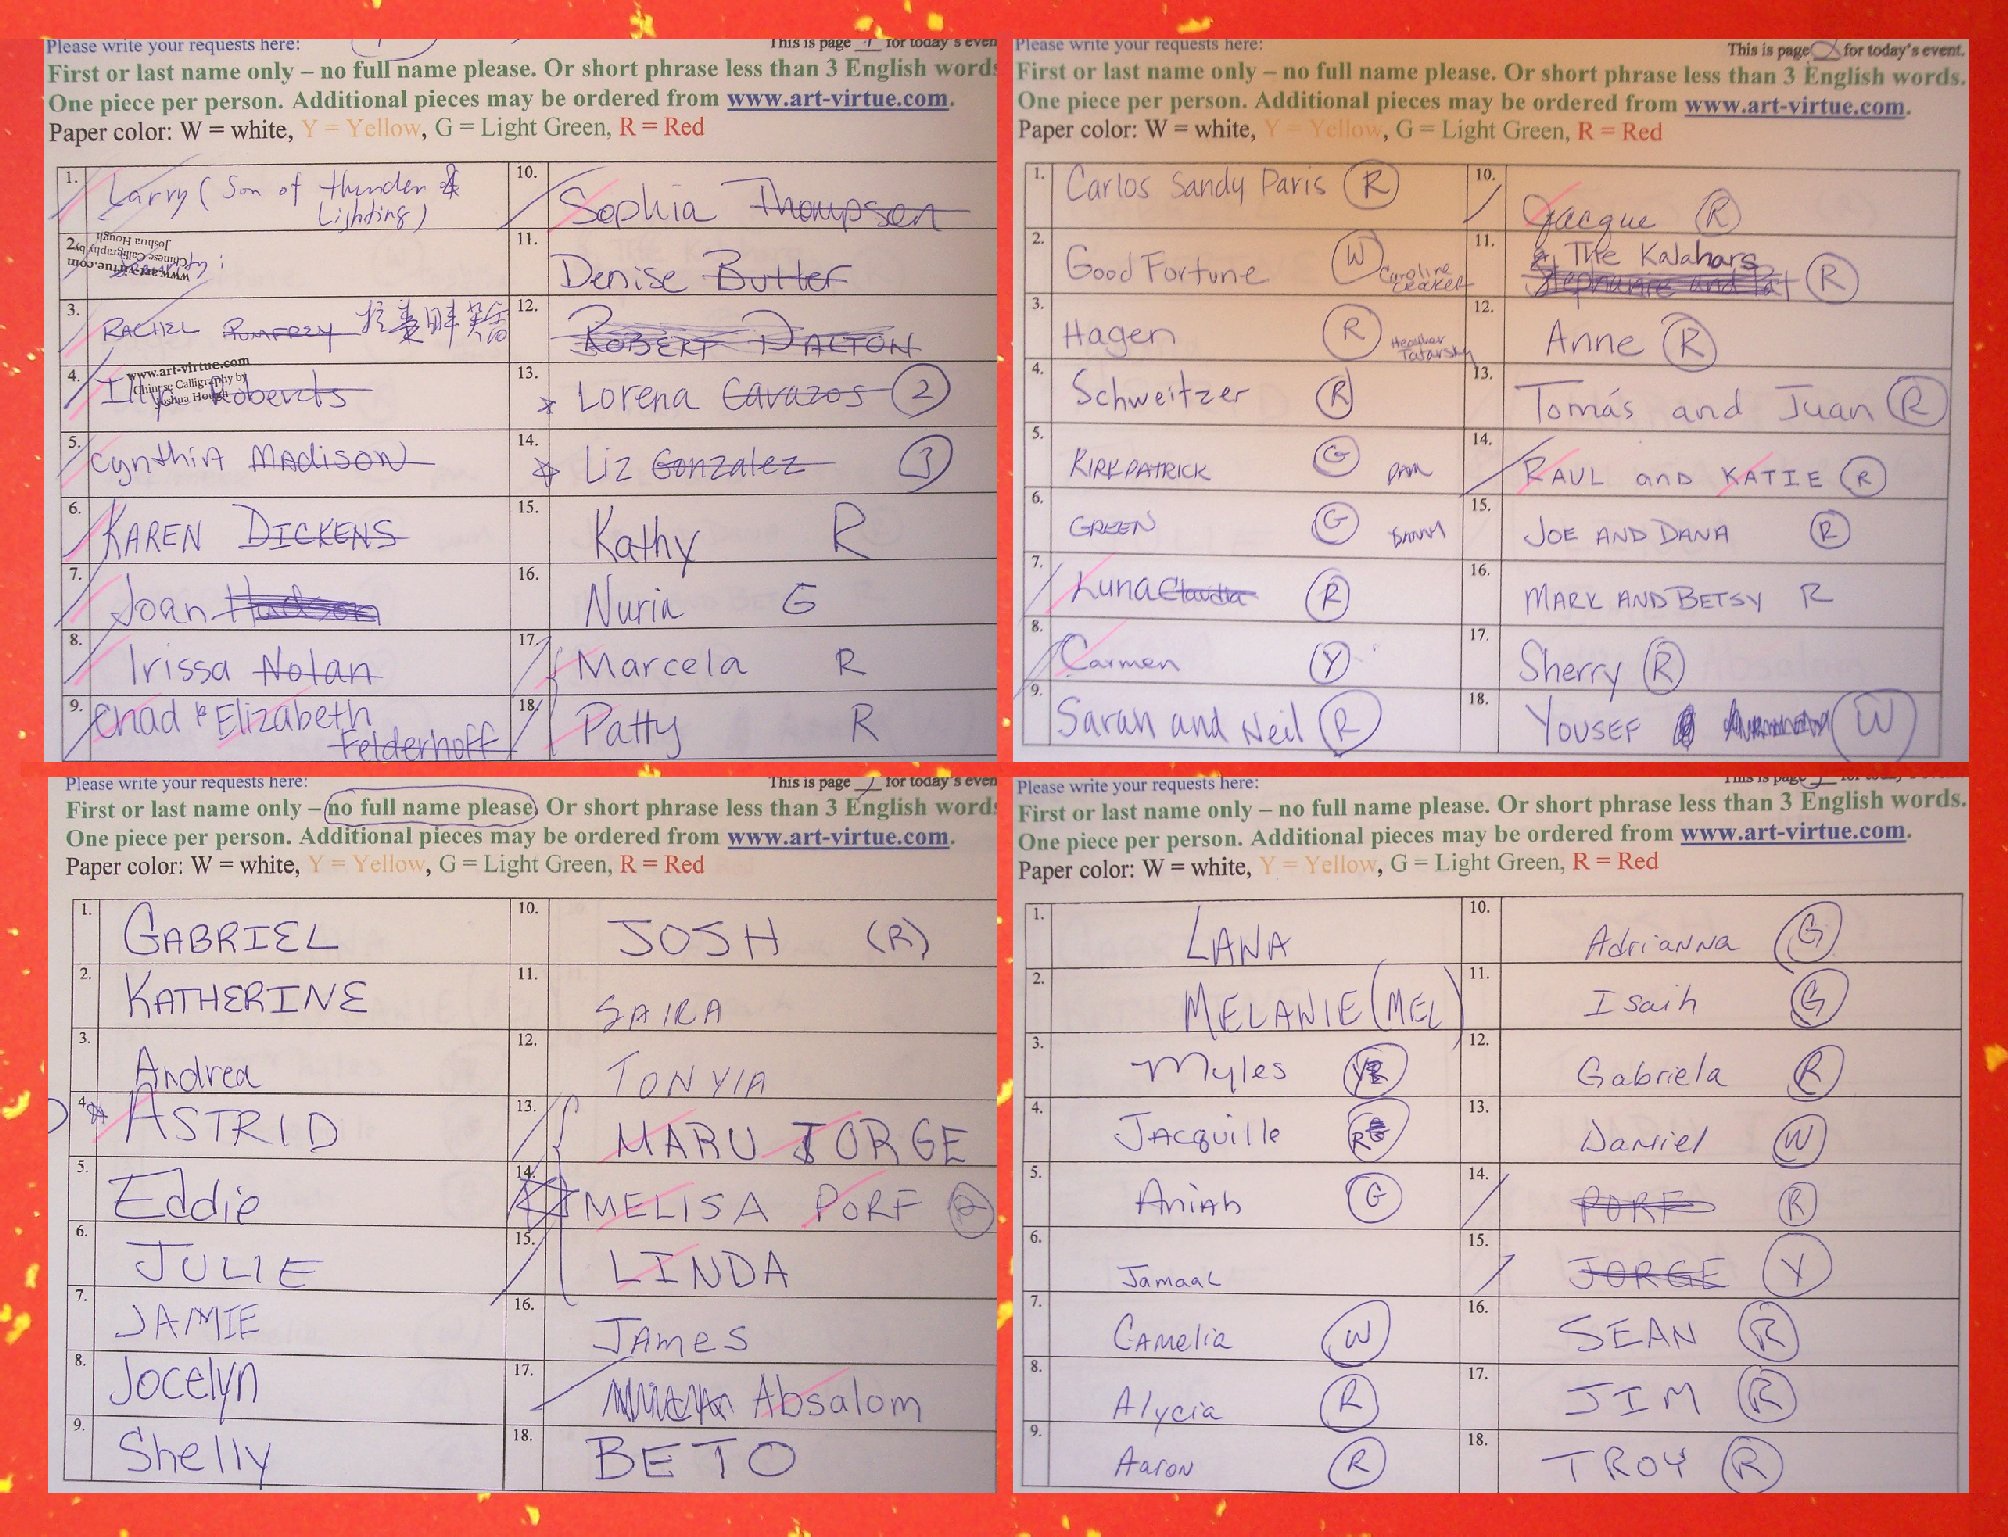 Please write your requests here:
This is page 1 for today's even
First or last name only – no full name please. Or short phrase less than 3 English words
One piece per person. Additional pieces may be ordered from www.art-virtue.com.
Paper color: W = white, Y = Yellow, G = Light Green, R = Red
1. Larry (Son of thunder &
Lighting)
2.
www.art-virtue.com
Chinese Calligraphy by
Joshua Hough
3. RACHEL
4. Roberts
www.art-virtue.com
Chinese Calligraphy by
Joshua Hough
5. Cynthia Madison
6. KAREN DICKENS
7. Joan Hudson
8. Irissa Nolan
9. Chad & Elizabeth
Felderhoff
10. Sophia Thompson
11. Denise Butler
12. ROBERT DALTON
13. Lorena Cavazos 2
14. Liz Gonzalez 3
15. Kathy R
16. Nuria G
17. Marcela R
18. Patty R
Please write your requests here:
This is page 2 for today's event.
First or last name only – no full name please. Or short phrase less than 3 English words.
One piece per person. Additional pieces may be ordered from www.art-virtue.com.
Paper color: W = white, Y = Yellow, G = Light Green, R = Red
1. Carlos Sandy Paris R
2. Good Fortune W Caroline
3. Hagen R Heather
4. Schweitzer R
5. KIRKPATRICK G PAM
6. GREEN G
7. Luna Claudia R
8. Carmen Y
9. Sarah and Neil R
10. Jacque R
11. The Kalahars
Stephanie and Pat R
12. Anne R
13. Tomás and Juan R
14. RAUL and KATIE R
15. JOE AND DANA R
16. MARK AND BETSY R
17. Sherry R
18. YOUSEF W
Please write your requests here:
This is page for today's even
First or last name only – no full name please. Or short phrase less than 3 English words
One piece per person. Additional pieces may be ordered from www.art-virtue.com.
Paper color: W = white, Y = Yellow, G = Light Green, R = Red
1. GABRIEL
2. KATHERINE
3. Andrea
4. ASTRID
5. Eddie
6. JULIE
7. JAMIE
8. Jocelyn
9. Shelly
10. JOSH (R)
11. SAIRA
12. TONYIA
13. MARU JORGE
14. MELISA PORF
15. LINDA
16. JAMES
17. Absalom
18. BETO
Please write your requests here:
This is page
First or last name only – no full name please. Or short phrase less than 3 English words.
One piece per person. Additional pieces may be ordered from www.art-virtue.com.
Paper color: W = white, Y = Yellow, G = Light Green, R = Red
1. LANA
2. MELANIE (MEL)
3. Myles
4. JACquille
5. Aniah G
6. Jamaal
7. CAMelia W
8. Alycia R
9. Aaron R
10. Adrianna G
11. Isaih G
12. Gabriela R
13. Daniel W
14. PORF R
15. JORGE Y
16. SEAN R
17. JIM R
18. TROY R